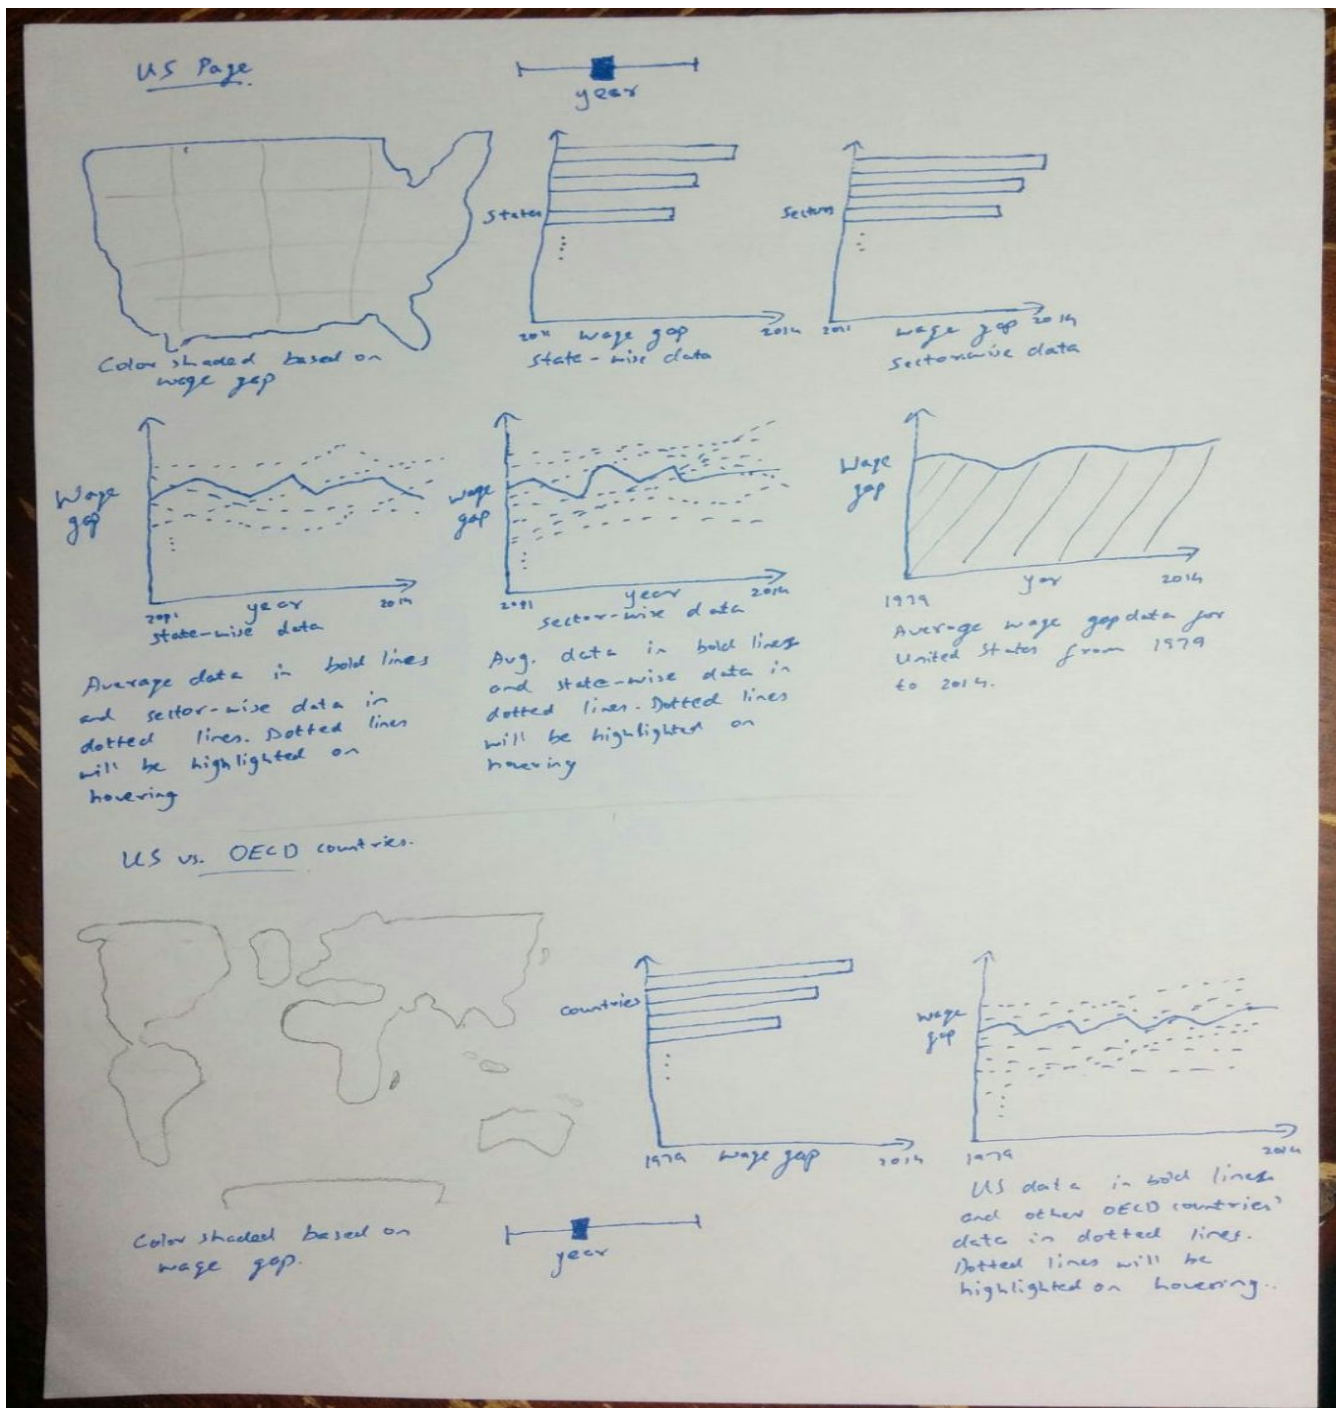 US Page
year
States
2011 wage gap 2014
State-wise data
Sectors
2011 wage gap 2014
Sector-wise data
Color shaded based on
wage gap
Wage
gap
2011 year 2014
State-wise data
Average data in bold lines
and sector-wise data in
dotted lines. Dotted lines
will be highlighted on
hovering
wage
gap
2011 year 2014
Sector-wise data
Avg. data in bold lines
and state-wise data in
dotted lines. Dotted lines
will be highlighted on
hovering
Wage
gap
1979 year 2014
Average wage gap data for
United States from 1979
to 2014.
US vs. OECD countries.
Color shaded based on
wage gap.
year
Countries
1979 wage gap 2014
wage
gap
1979 2014
US data in bold lines
and other OECD countries'
data in dotted lines.
Dotted lines will be
highlighted on hovering..